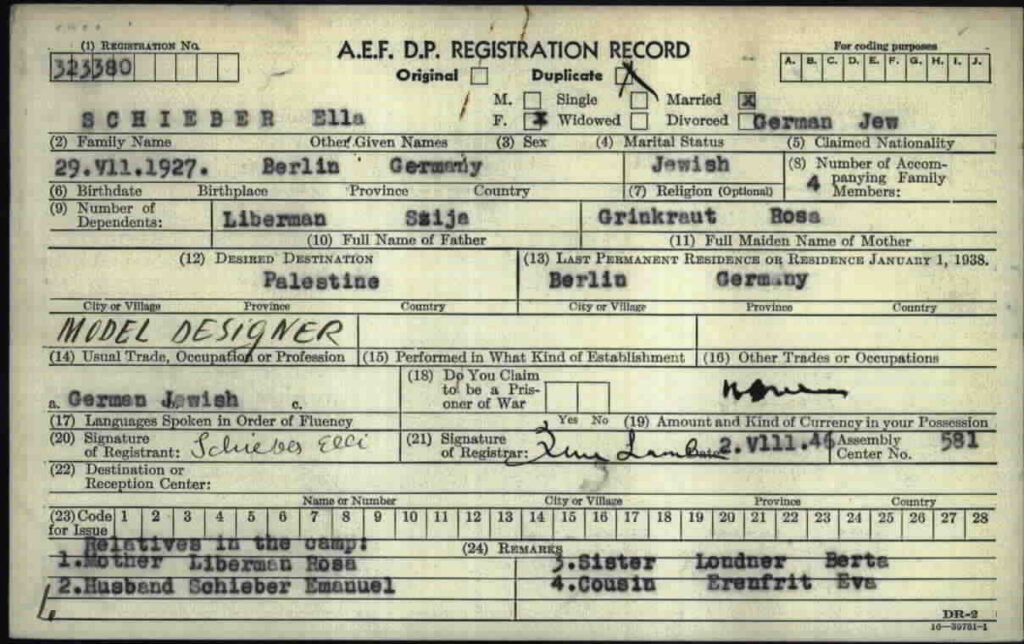 (1) REGISTRATION NO.
323380
A.E.F. D.P. REGISTRATION RECORD
Original Duplicate X
For coding purposes
A. B. C. D. E. F. G. H. I. J.
M. Single Married X
SCHIEBER Ella F. X Widowed Divorced German Jew
(2) Family Name Other Given Names (3) Sex (4) Marital Status (5) Claimed Nationality
29.VII.1927. Berlin Germany Jewish (8) Number of Accom-
panying Family
Members: 4
(6) Birthdate Birthplace Province Country (7) Religion (Optional)
(9) Number of
Dependents: Liberman Szija Grinkraut Rosa
(10) Full Name of Father (11) Full Maiden Name of Mother
(12) DESIRED DESTINATION (13) LAST PERMANENT RESIDENCE OR RESIDENCE JANUARY 1, 1938.
Palestine Berlin Germany
City or Village Province Country City or Village Province Country
MODEL DESIGNER
(14) Usual Trade, Occupation or Profession (15) Performed in What Kind of Establishment (16) Other Trades or Occupations
a. German Jewish c. (18) Do You Claim
to be a Pris-
oner of War
(17) Languages Spoken in Order of Fluency Yes No (19) Amount and Kind of Currency in your Possession
(20) Signature
of Registrant: Schieber Elli (21) Signature
of Registrar: 2.VIII.46 Assembly
Center No. 581
(22) Destination or
Reception Center:
Name or Number City or Village Province Country
(23) Code
for Issue 1 2 3 4 5 6 7 8 9 10 11 12 13 14 15 16 17 18 19 20 21 22 23 24 25 26 27 28
Relatives in the camp: (24) REMARKS
1.Mother Liberman Rosa 3.Sister Londner Berta
2.Husband Schieber Emanuel 4.Cousin Erenfrit Eva
DR-2
16-39751-1